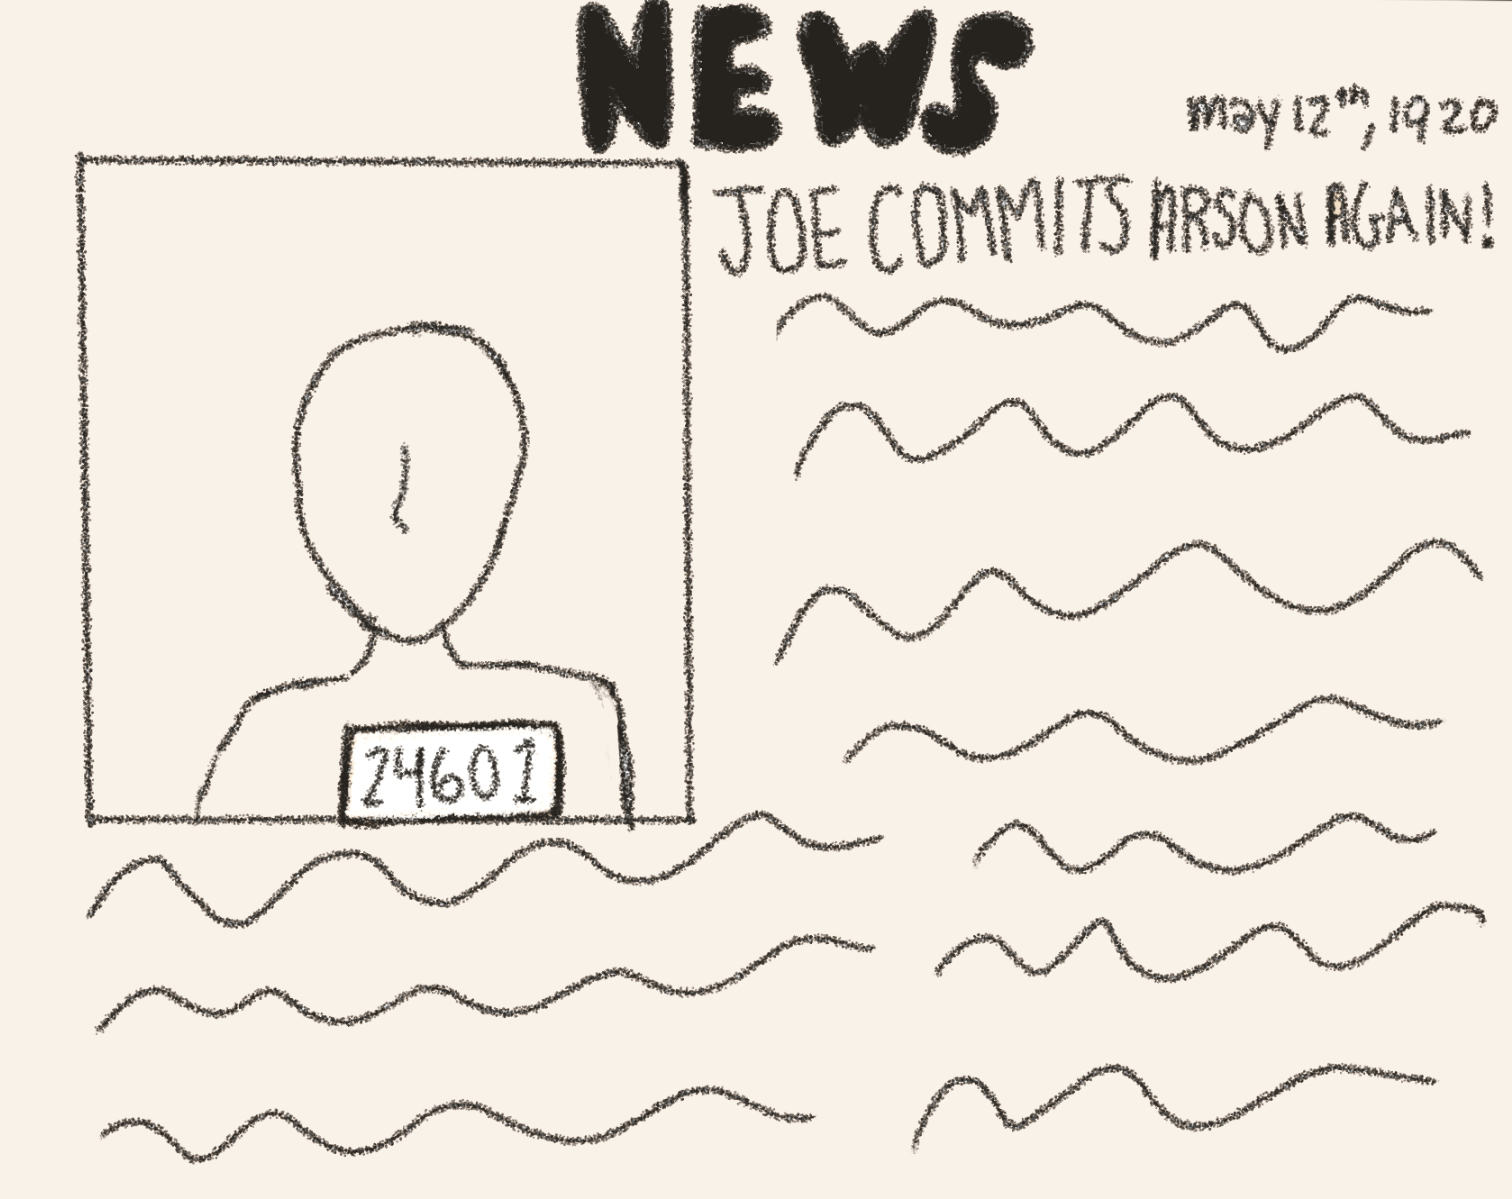 NEWS
may 12th, 1920
JOE COMMITS ARSON AGAIN!
24601